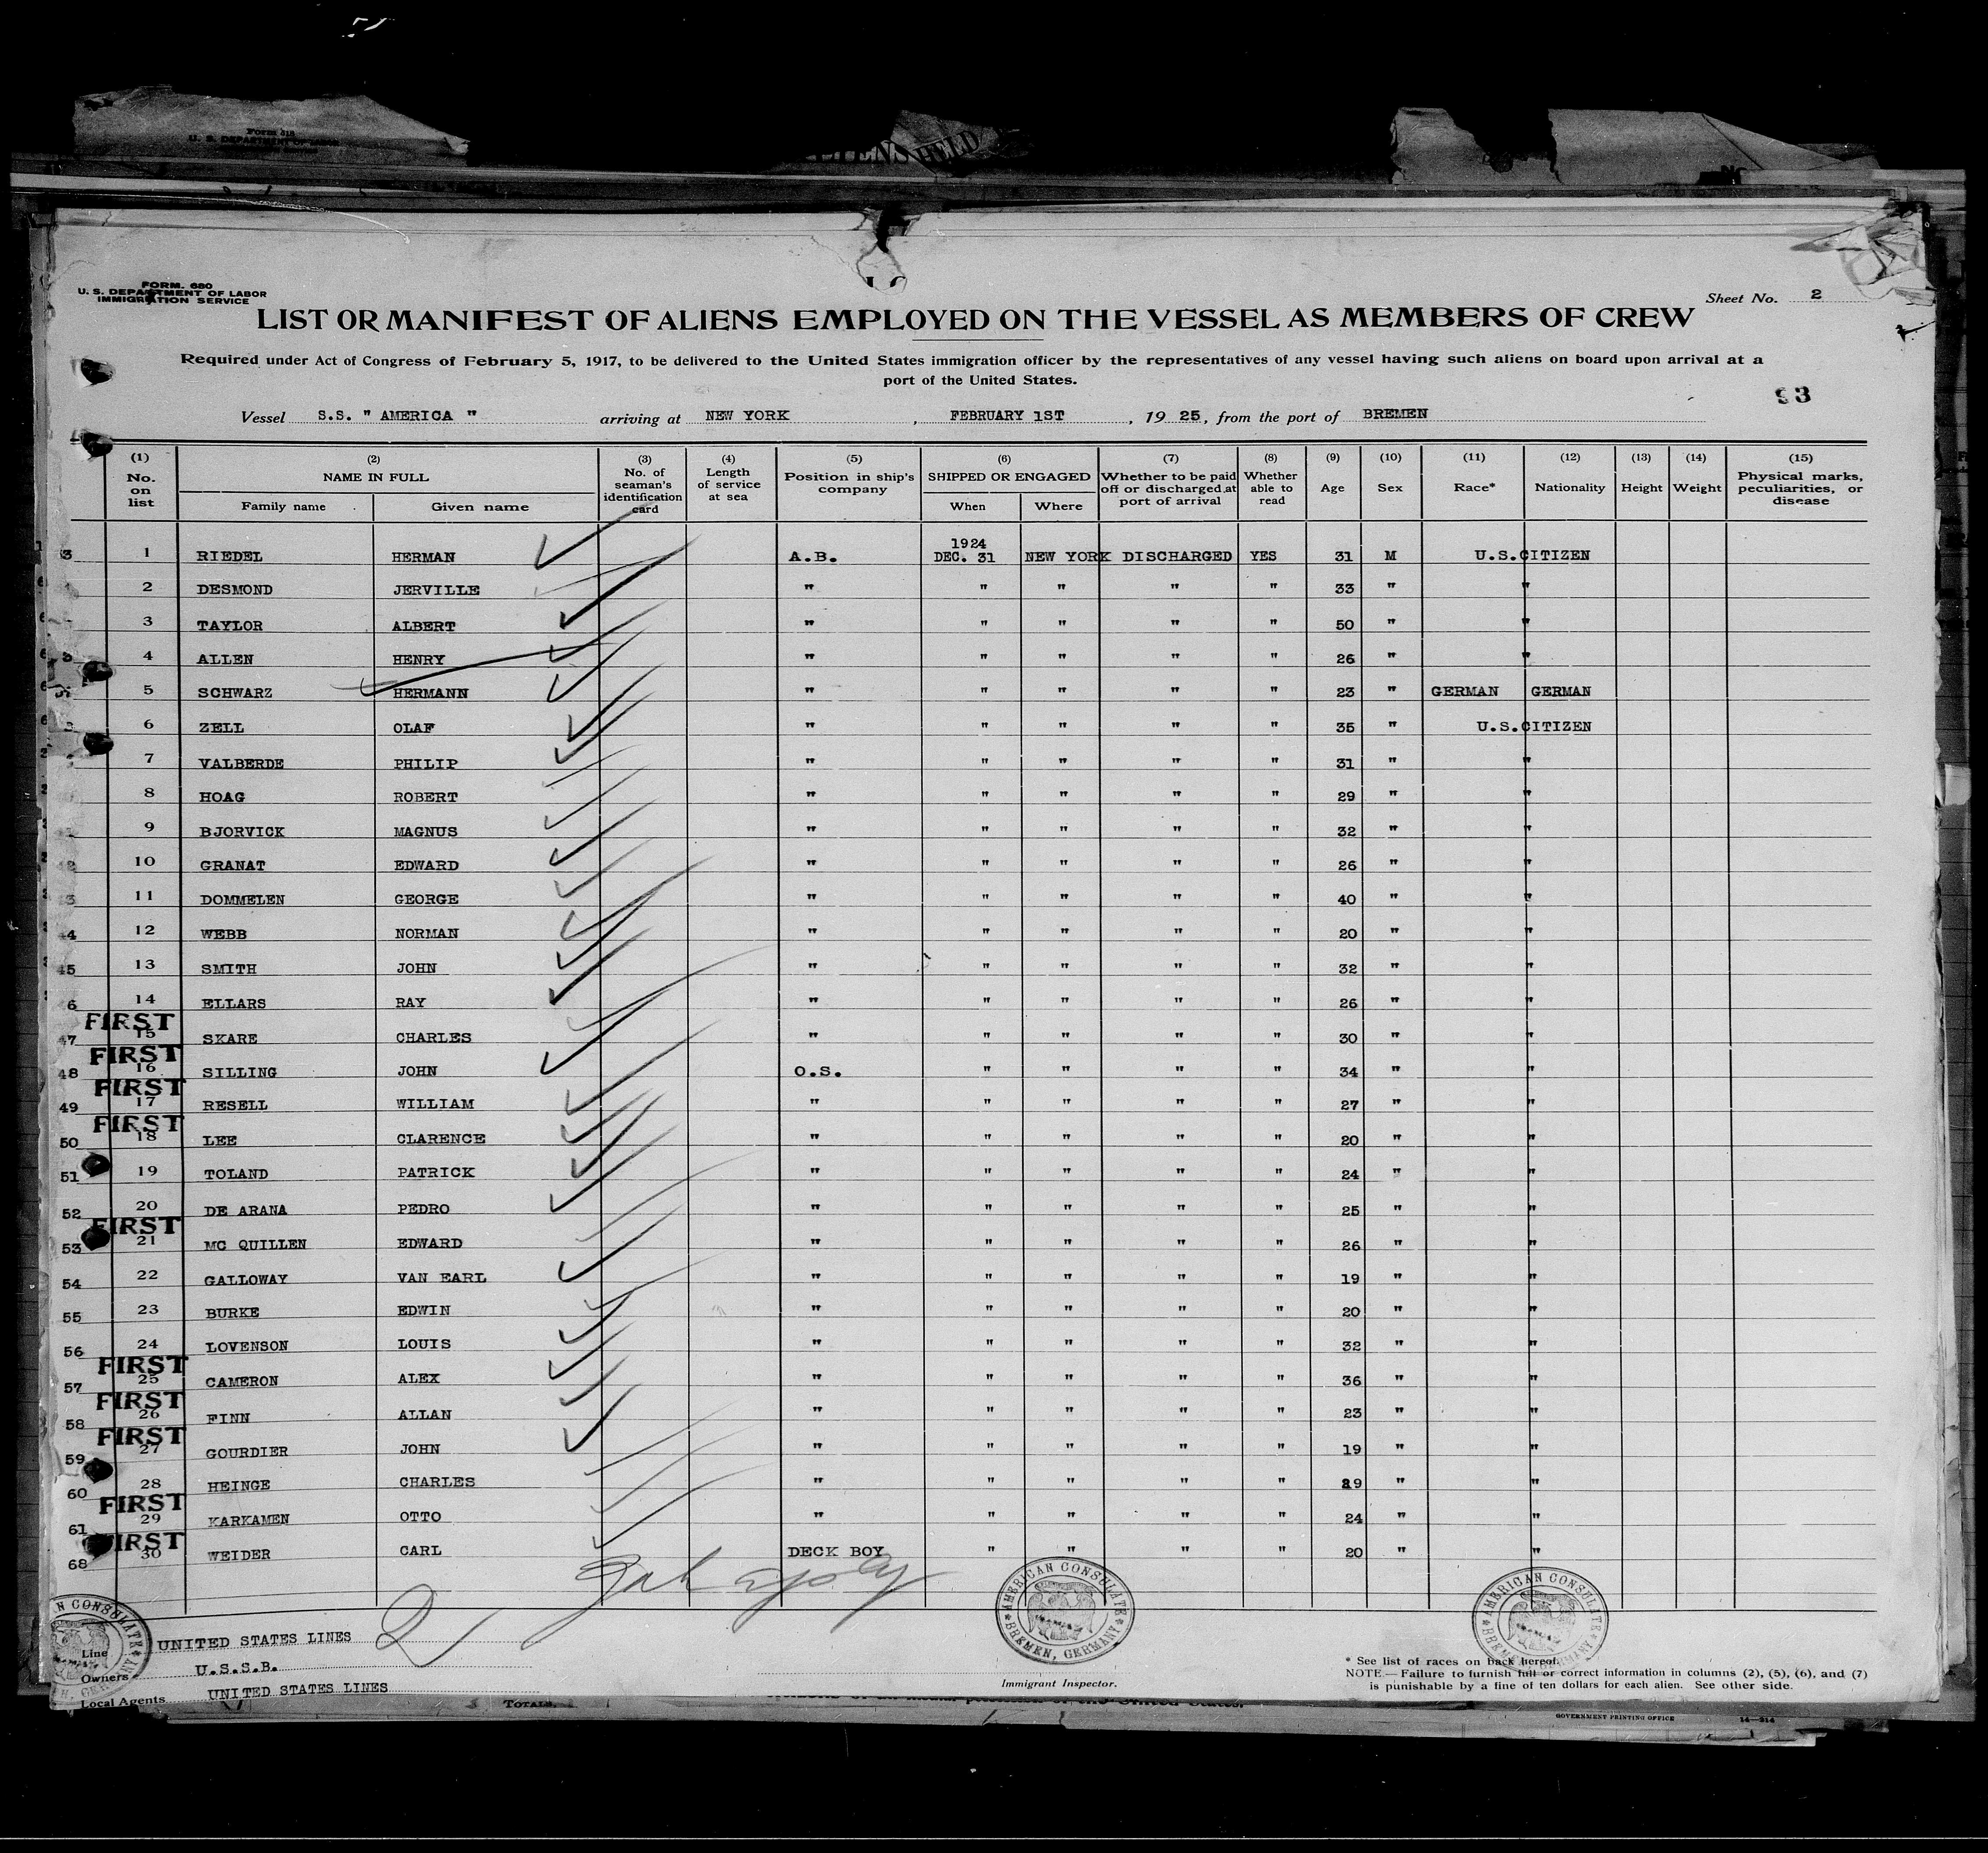 Form 318
U. S. DEPARTMENT OF LABOR
FORM. 680
U. S. DEPARTMENT OF LABOR
IMMIGRATION SERVICE
Sheet No. 2
LIST OR MANIFEST OF ALIENS EMPLOYED ON THE VESSEL AS MEMBERS OF CREW
Required under Act of Congress of February 5, 1917, to be delivered to the United States immigration officer by the representatives of any vessel having such aliens on board upon arrival at a
port of the United States.
93
Vessel S.S. " AMERICA " arriving at NEW YORK , FEBRUARY 1ST , 19 25, from the port of BREMEN
(1) (2) (3) (4) (5) (6) (7) (8) (9) (10) (11) (12) (13) (14) (15)
No. on list NAME IN FULL Family name Given name No. of seaman's identification card Length of service at sea Position in ship's company SHIPPED OR ENGAGED When Where Whether to be paid off or discharged at port of arrival Whether able to read Age Sex Race* Nationality Height Weight Physical marks, peculiarities, or disease
1 RIEDEL HERMAN A.B. 1924 DEC. 31 NEW YORK DISCHARGED YES 31 M U.S.CITIZEN
2 DESMOND JERVILLE " " " " " 33 " "
3 TAYLOR ALBERT " " " " " 50 " "
4 ALLEN HENRY " " " " " 26 " "
5 SCHWARZ HERMANN " " " " " 23 " GERMAN GERMAN
6 ZELL OLAF " " " " " 35 " U.S.CITIZEN
7 VALBERDE PHILIP " " " " " 31 " "
8 HOAG ROBERT " " " " " 29 " "
9 BJORVICK MAGNUS " " " " " 32 " "
10 GRANAT EDWARD " " " " " 26 " "
11 DOMMELEN GEORGE " " " " " 40 " "
44 12 WEBB NORMAN " " " " " 20 " "
45 13 SMITH JOHN " " " " " 32 " "
6 14 ELLARS RAY " " " " " 26 " "
47 FIRST 15 SKARE CHARLES " " " " " 30 " "
48 FIRST 16 SILLING JOHN O.S. " " " " 34 " "
49 FIRST 17 RESELL WILLIAM " " " " " 27 " "
50 FIRST 18 LEE CLARENCE " " " " " 20 " "
51 19 TOLAND PATRICK " " " " " 24 " "
52 20 DE ARANA PEDRO " " " " " 25 " "
53 FIRST 21 MC QUILLEN EDWARD " " " " " 26 " "
54 22 GALLOWAY VAN EARL " " " " " 19 " "
55 23 BURKE EDWIN " " " " " 20 " "
56 24 LOVENSON LOUIS " " " " " 32 " "
57 FIRST 25 CAMERON ALEX " " " " " 36 " "
58 FIRST 26 FINN ALLAN " " " " " 23 " "
59 FIRST 27 GOURDIER JOHN " " " " " 19 " "
60 28 HEINGE CHARLES " " " " " "  "
61 FIRST 29 KARKAMEN OTTO " " " " " 24 " "
68 FIRST 30 WEIDER CARL DECK BOY " " " " 20 " "
AMERICAN CONSULATE BREMEN, GERMANY
AMERICAN CONSULATE BREMEN, GERMANY
Line UNITED STATES LINES
Owners U.S.S.B.
Local Agents UNITED STATES LINES
Immigrant Inspector.
* See list of races on back hereof.
NOTE.—Failure to furnish full or correct information in columns (2), (5), (6), and (7)
is punishable by a fine of ten dollars for each alien. See other side.
TOTALS
GOVERNMENT PRINTING OFFICE 14—214